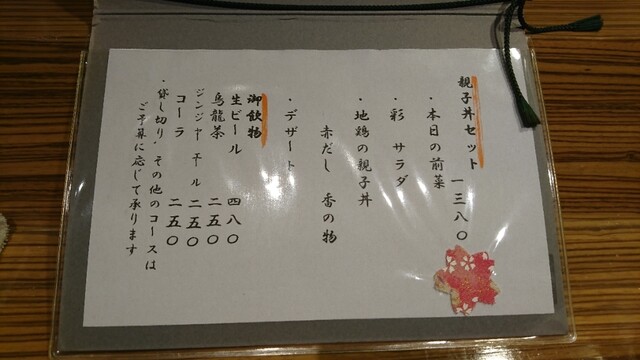 親子丼セット 一三八〇
・本日の前菜
・彩 サラダ
・地鶏の親子丼
赤だし 香の物
・デザート
御飲物
生ビール 四八〇
烏龍茶 二五〇
ジンジャーエール 二五〇
コーラ 二五〇
・貸し切り、その他のコースは
ご予算に応じて承ります